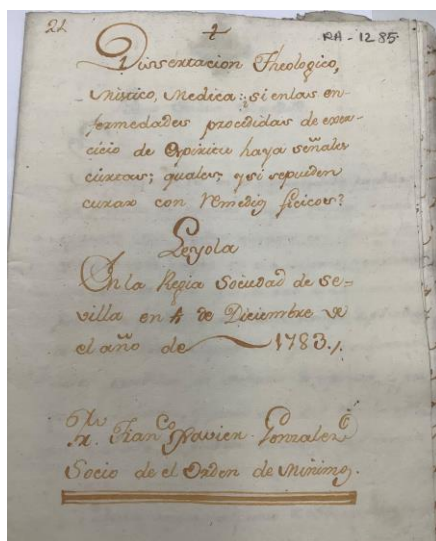 22
RA-1285
Dissertacion Theologico,
Mistico, Medica: si enlas en-
fermedades procedidas de exer-
cicio de Espiritu haya señales
ciertas; quales, y si sepueden
curar con remedios fisicos?
Leyola
En la Regia Sociedad de Se-
villa en 4 de Diciembre de
el año de 1783.
Fran.co Xavier Gonzalez
Socio de el Orden de Minimos.